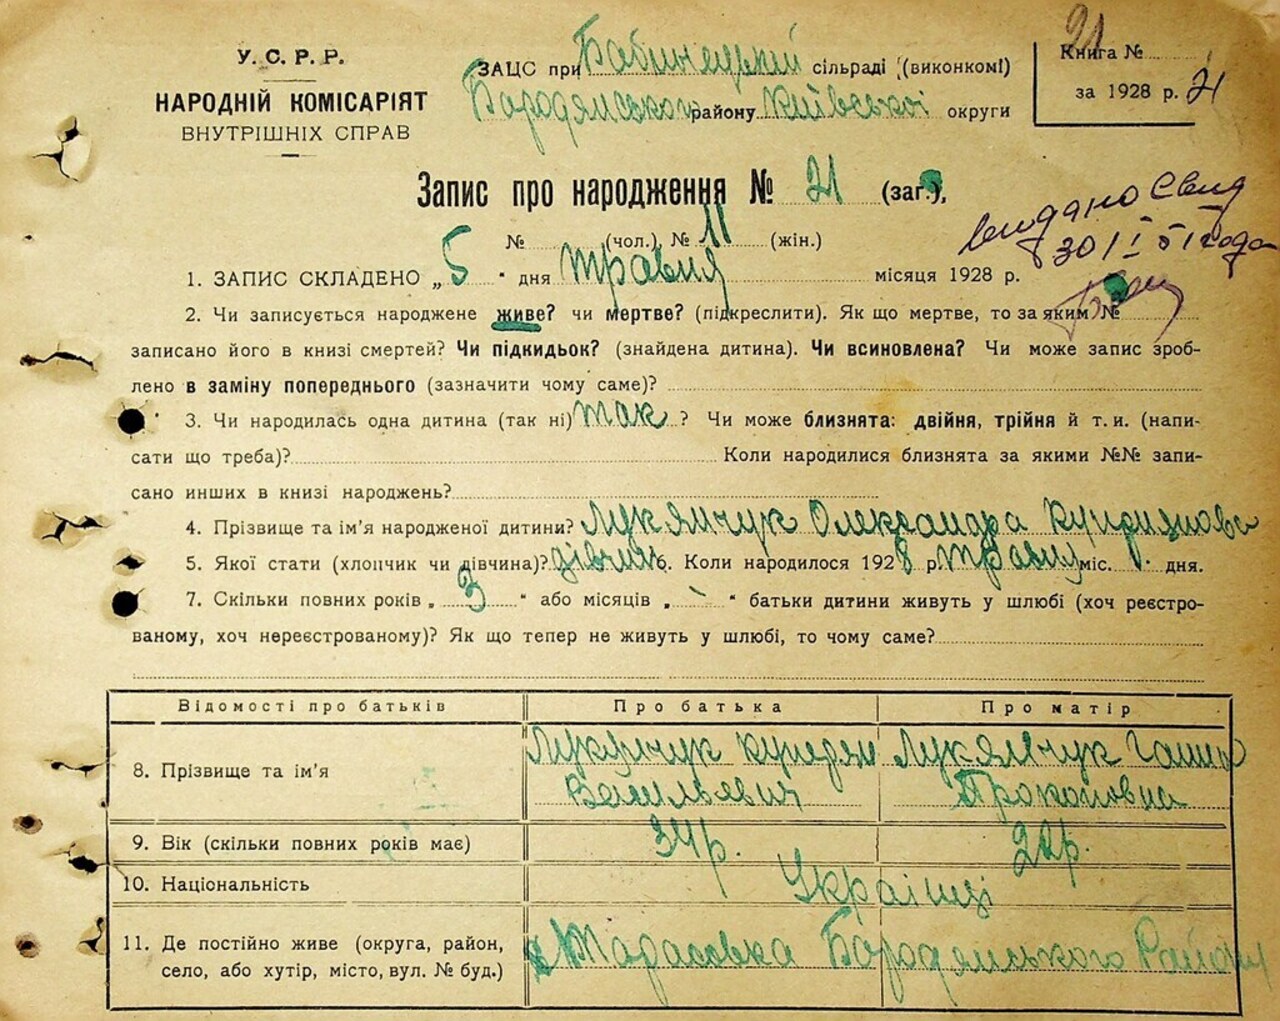 У. С. Р. Р.
НАРОДНІЙ КОМІСАРІЯТ
ВНУТРІШНІХ СПРАВ
ЗАЦС при Бабинецкій сільраді (виконкомі)
Бородянського району Київської округи
Книга № 21
за 1928 р. 21
Запис про народження № 21 (заг.),
№ (чол.), № 11 (жін.)
видано Свид
30/I 51 года
1. ЗАПИС СКЛАДЕНО „ 5 " дня травня місяця 1928 р.
2. Чи записується народжене живе? чи мертве? (підкреслити). Як що мертве, то за яким №
записано його в книзі смертей? Чи підкидьок? (знайдена дитина). Чи всиновлена? Чи може запис зроб-
лено в заміну попереднього (зазначити чому саме)?
3. Чи народилась одна дитина (так ні) так ? Чи може близнята: двійня, трійня й т. и. (напи-
сати що треба)? Коли народилися близнята за якими №№ запи-
сано инших в книзі народжень?
4. Прізвище та ім'я народженої дитини? Лукямчук Олександра Куприянова
5. Якої стати (хлопчик чи дівчина)? дівчин 6. Коли народилося 1928 р. травня міс. 1. дня.
7. Скільки повних років „ 3 " або місяців „ - " батьки дитини живуть у шлюбі (хоч реєстро-
ваному, хоч нереєстрованому)? Як що тепер не живуть у шлюбі, то чому саме?
Відомості про батьків Про батька Про матір
8. Прізвище та ім'я Лукямчук Купредян Васильєвич Лукямчук Ганна Прокоповна
9. Вік (скільки повних років має) 34 р. 22 р.
10. Національність Українці
11. Де постійно живе (округа, район,
село, або хутір, місто, вул. № буд.) Тарасовка Бородямського Району